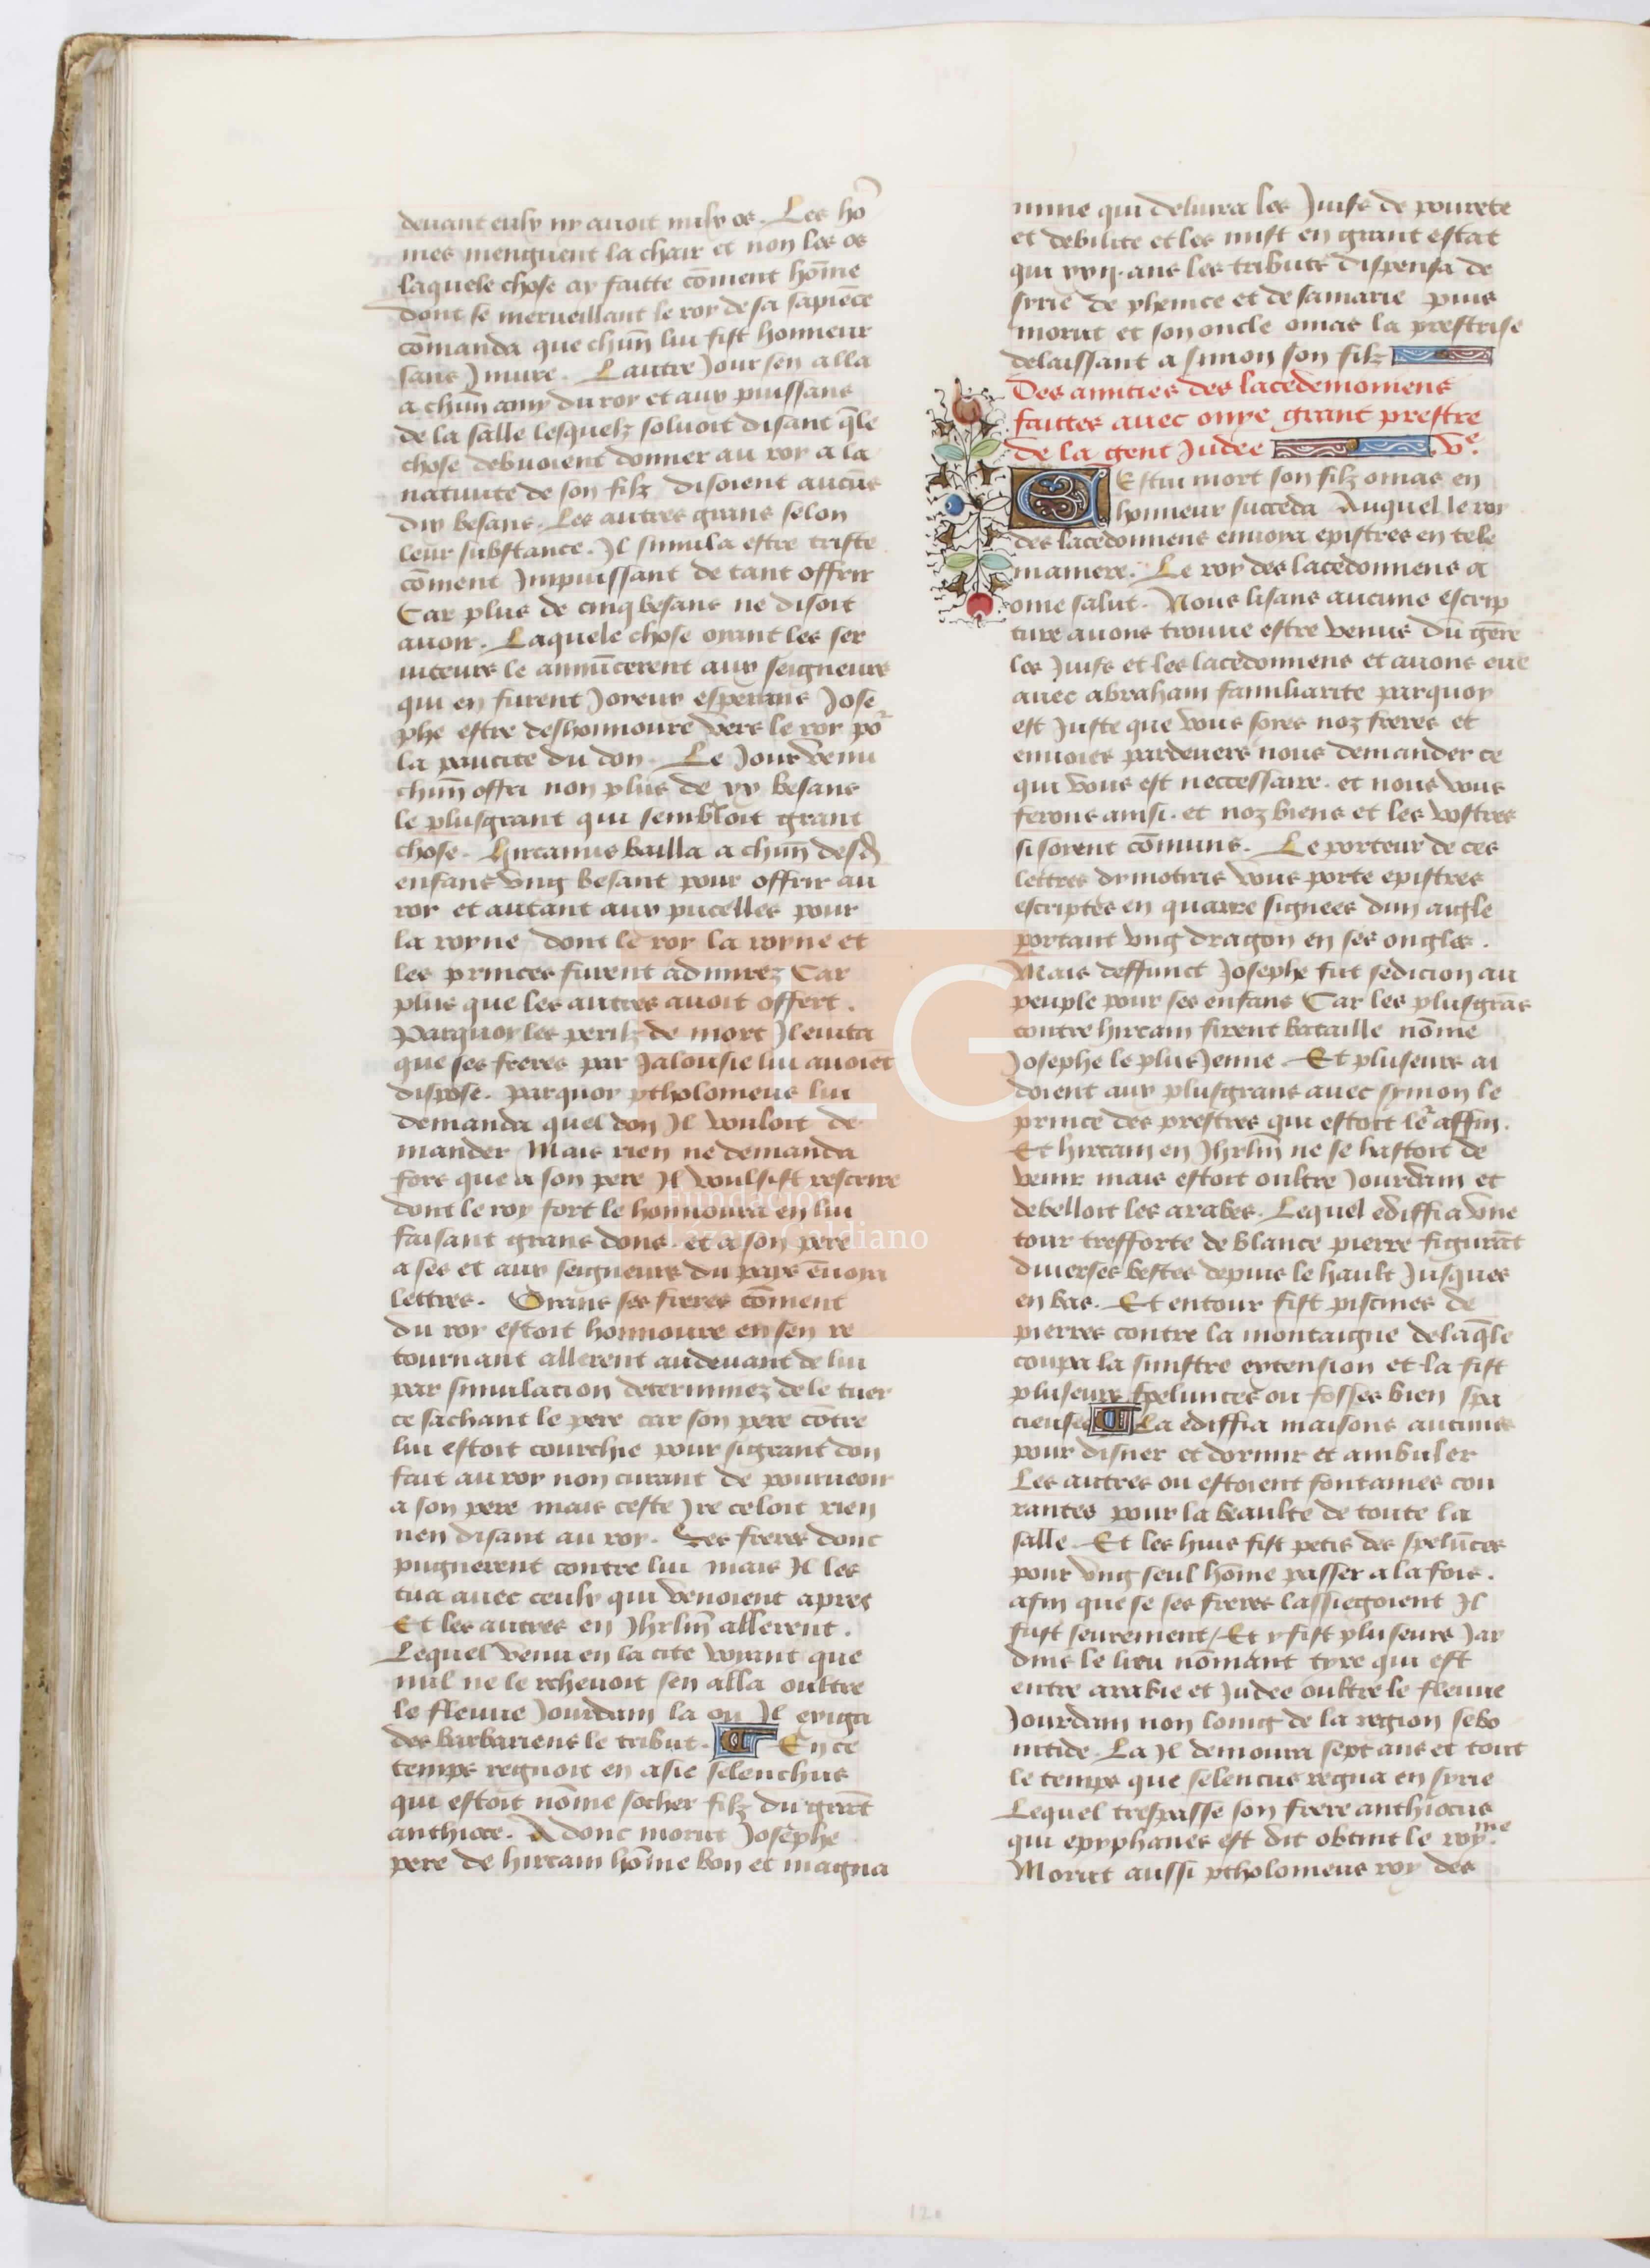 deuant eulx ny auoit nulx os. Les hō
mes menguent la chair et non les os
laquele chose ay faitte cōment hōme
dont se merueillant le roy de sa sapiēce
cōmanda que chūn lui fist honneur
sans Jniure. Lautre Jour sen alla
a chūn amy du roy et aux puissans
de la salle lesquelz soluoit disant q̄le
chose debuoient donner au roy a la
natiuite de son filz disoient aucūs
dix besans. Les autres grans selon
leur substance. Il simula estre triste
cōment Jmpuissant de tant offrir
Car plus de cinq besans ne disoit
auoir. Laquele chose oyant les ser
uiteurs le annūcerent aux seigneurs
qui en furent Joyeux esperans Jose
phe estre deshonnoure vers le roy po
la paucite du don. Le Jour venu
chūn offri non plus de xx besans
le plusgrant qui sembloit grant
chose. Hircanus bailla a chūn desd
enfans vng besant pour offrir au
roy et autant aux pucelles pour
la royne dont le roy la royne et
les princes furent admirez Car
plus que les autres auoit offert.
Parquoy les perilz de mort Il euita
que ses freres par Jalousie lui auoiēt
dispose. parquoy ptholomeus lui
demanda quel don Il vouloit de
mander Mais rien ne demanda
fors que a son pere Il voulsist rescrire
dont le roy fort le honnoura en lui
faisant grans dons. et a son pere
a ses et aux seigneurs du pays ēuoya
lettres. Oyans ses freres cōment
du roy estoit honnoure en sen re
tournant allerent audeuant de lui
par simulacion determinez de le tuer
ce sachant le pere car son pere cōtre
lui estoit courchie pour si grant don
fait au roy non curant de pourueoir
a son pere mais ceste Jre celoit rien
nen disant au roy. Ses freres donc
pugnerent contre lui mais Il les
tua auec ceulx qui venoient apres
Et les autres en Jhrlm̄ allerent.
Lequel venu en la cite voyant que
nul ne le recheuoit sen alla oultre
le fleuue Jourdain la ou Il exiga
des barbariens le tribut. En ce
temps regnoit en asie selenchus
qui estoit nōme socher filz du grāt
anthioce. A donc morut Josephe
pere de hircain hōme bon et magna
nime qui deliura les Juifs de pourete
et debilite et les mist en grant estat
qui xxij. ans les tributs dispensa de
syrie de phenice et de samarie puis
morut et son oncle onias la prestrise
delaissant a simon son filz
Des amities des lacedemoniens
faittes auec onye grant prestre
de la gent Judee v.e
Cestui mort son filz onias en
honneur succeda Auquel le roy
des lacedonniens enuoya epistres en tele
maniere. Le roy des lacedonniens a
onie salut. Nous lisans aucune escrip
ture auons trouue estre venus du gēre
les Juifs et les lacedonniens et auons eue
auec abraham familiarite parquoy
est Juste que vous soyes noz freres et
enuoies pardeuers nous demander ce
qui vous est neccessaire. et nous vous
ferons ainsi. et noz biens et les vostres
si soient cōmuns. Le porteur de ces
lettres dymotiris vous porte epistres
escriptes en quarre signees dun aigle
portant vng dragon en ses ongles.
Mais deffunct Josephe fut sedicion au
peuple pour ses enfans Car les plusgrās
contre hircam firent bataille nōme
Josephe le plus Jenne. Et pluseurs ai
doient aux plusgrans auec symon le
prince des prestres qui estoit le affin.
Et hircam en Jhrlm̄ ne se hastoit de
venir mais estoit oultre Jourdain et
debelloit les arabes. Lequel ediffia vne
tour trefforte de blance pierre figurāt
diuerses bestes depuis le hault Jusques
en bas. Et entour fist piscines de
pierres contre la montaigne delaq̄le
coupa la sinistre extension et la fist
pluseurs spelunces ou fosses bien spa
cieuses La ediffia maisons aucunes
pour disner et dormir et ambuler
Les autres ou estoient fontaines cou
rantes pour la beaulte de toute la
salle. Et les huis fist petis des spelūces
pour vng seul hōme passer a la fois.
afin que se ses freres lassiegoient Il
fust seurement/ Et y fist pluseurs Jar
dins le lieu nōmant tyre qui est
entre arabie et Judee oultre le fleuue
Jourdain non loing de la region sebo
nitide. La Il demoura sept ans et tout
le temps que selencus regna en syrie
Lequel trespasse son frere anthiocus
qui epyphanes est dit obtint le roy.me
Morut aussi ptholomeus roy des
LG
Fundación
Lázaro Galdiano